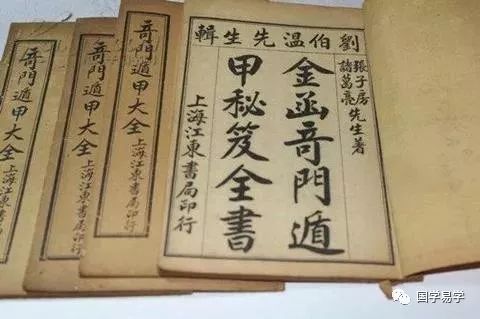 劉伯温先生輯
張子房
諸葛亮
先生著
金函竒門遁
甲秘笈全書
上海江東書局印行
竒門遁甲大全
上海江東書局印行
竒門遁甲大全
上海江東書局印行
竒門遁甲大全
上海江東
国学易学